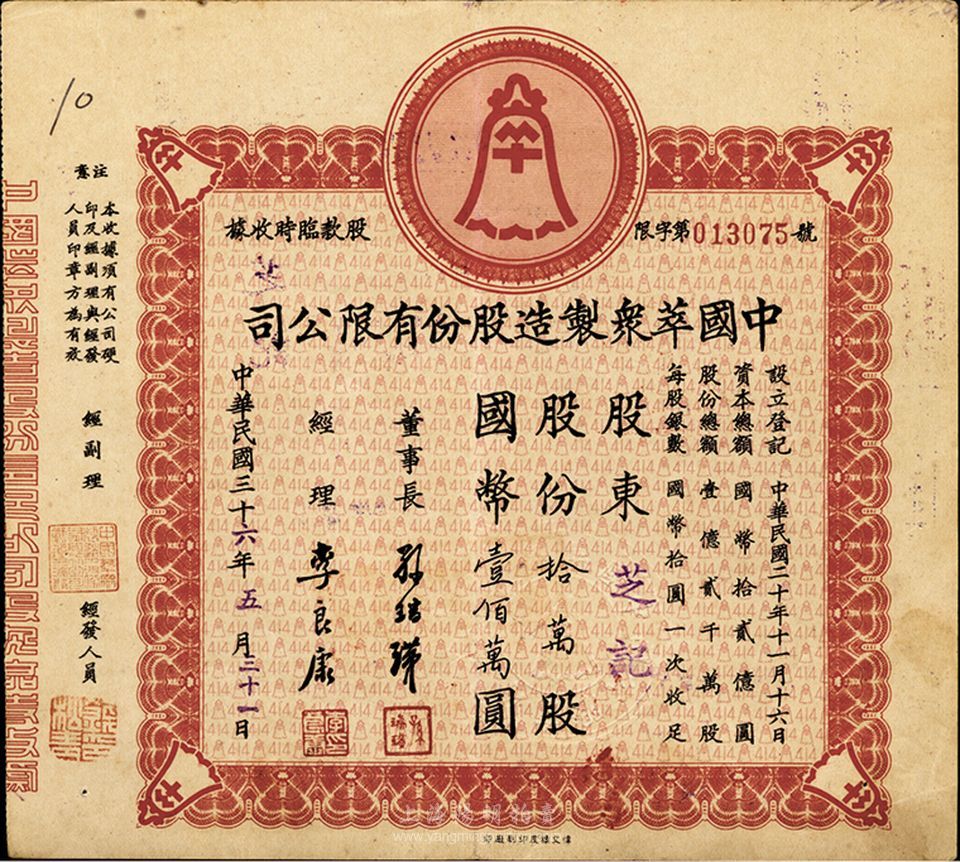 股款臨時收據
限字第013075號
中國萃衆製造股份有限公司
設立登記 中華民國二十年十一月十六日
資本總額 國幣拾貳億圓
股份總額 壹億貳千萬股
每股銀數 國幣拾圓一次收足
股東 芝記
股份 拾萬股
國幣 壹佰萬圓
董事長
經理 李良康
中華民國三十六年五月三十一日
注意
本收據須有公司硬
印及經副理與經發
人員印章方為有效
經副理
經發人員
10
414
上海陽明拍賣